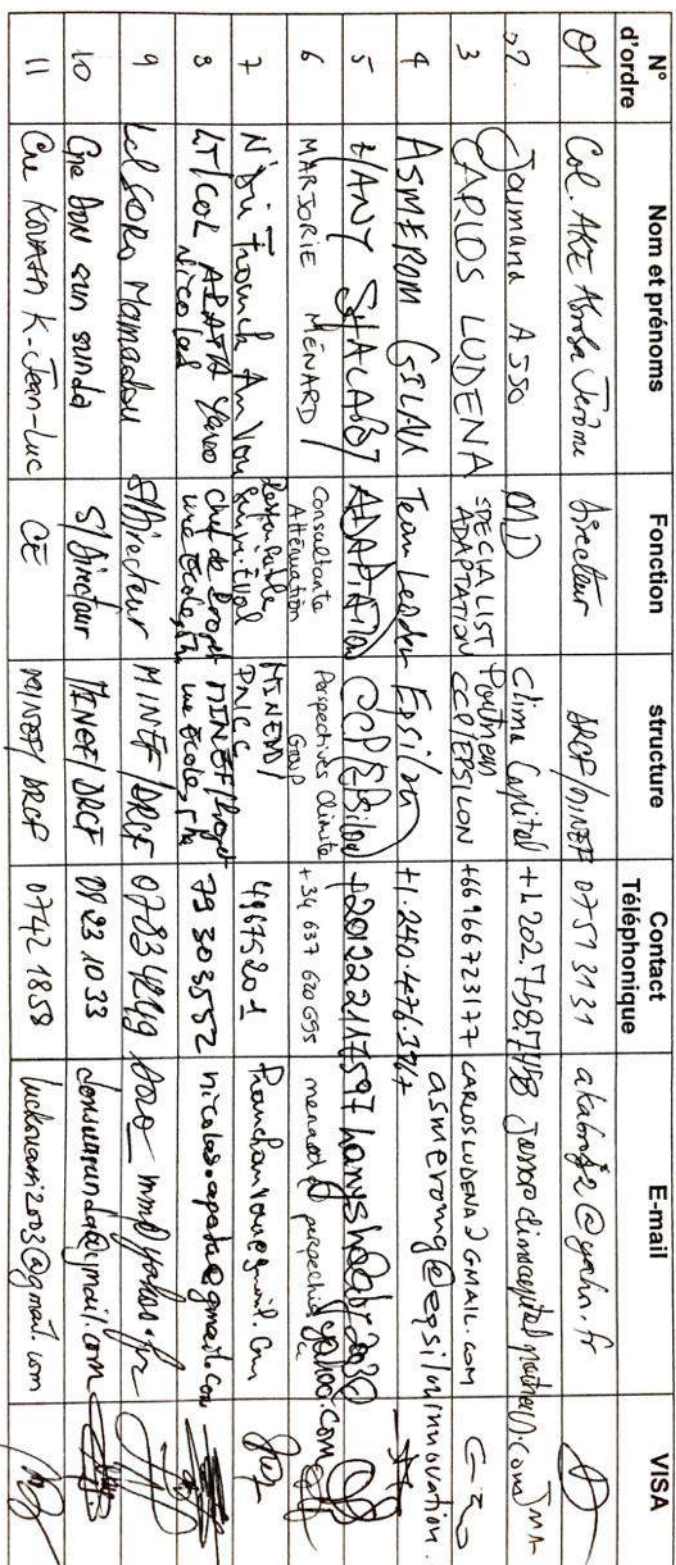 N° d'ordre Nom et prénoms Fonction structure Contact Téléphonique E-mail VISA
01 Col. AKE Abroba Jerôme Directeur DRCF/MINEF 07513131
02 Joumana ASSO MD Clima Capital Partners +1 202.758.7458
3 CARLOS LUDENA SPECIALIST ADAPTATION CCP/EPSILON +66966723177 CARLOSLUDENA@GMAIL.COM
4 ASMEROM GILAU Team Leader Epsilon +1.240.476.3967
5 HANY SHALABY ADAPTATION CCP/Epsilon +201222117597 hanyshalaby2030@yahoo.com
6 MARJORIE MÉNARD Consultante Atténuation Perspectives Climate Group +34 637 620 695
7 N'Dri Franck An Responsable Suivi-Eval MINEDD/ PNCC 49675201
8 LT/COL APATA Yavo Nicolas chef de Projet une école, 5 ha MINEF/Projet une école, 5 ha 79 303552 nicolas.apata@gmail.com
9 Lcl SORO Mamadou S/Directeur MINEF/DRCF 07834249
10 Cne DON sun sunda S/Directeur MINEF/DRCF 0923 1033 donsunsunda@gmail.com
11 Cne KOUASSI K. Jean-Luc CE MINEF/DRCF 0742 1858 luckouassi2003@gmail.com